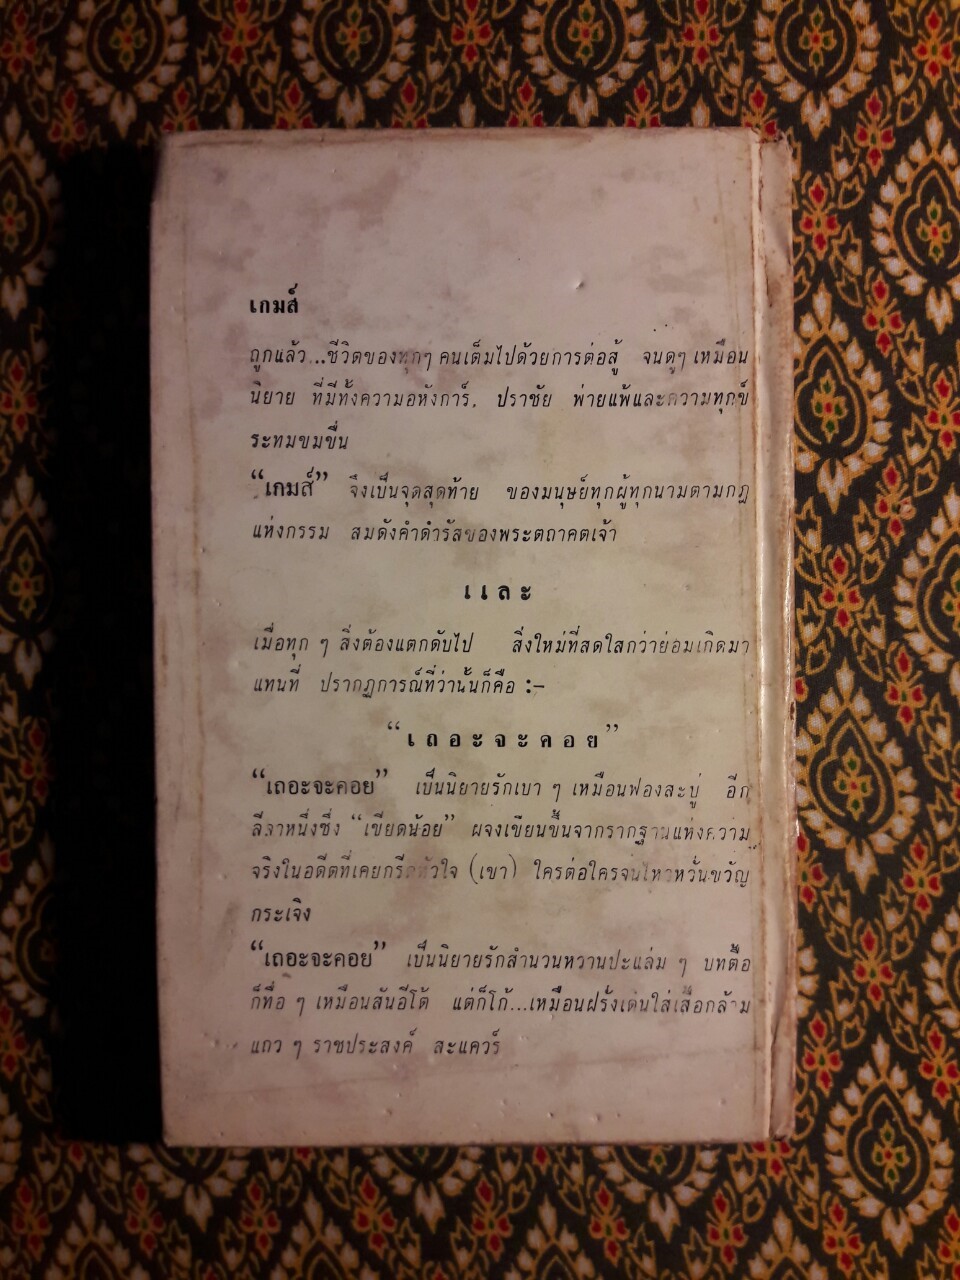 เกมส์
ถูกแล้ว...ชีวิตของทุกๆ คนเต็มไปด้วยการต่อสู้ จนดูๆ เหมือน
นิยาย ที่มีทั้งความอหังการ์, ปราชัย พ่ายแพ้และความทุกข์
ระทมขมขื่น
“เกมส์” จึงเป็นจุดสุดท้าย ของมนุษย์ทุกผู้ทุกนามตามกฎ
แห่งกรรม สมดังคำดำรัสของพระตถาคตเจ้า
และ
เมื่อทุก ๆ สิ่งต้องแตกดับไป สิ่งใหม่ที่สดใสกว่าย่อมเกิดมา
แทนที่ ปรากฏการณ์ที่ว่านั้นก็คือ :-
“เถอะจะคอย”
“เถอะจะคอย” เป็นนิยายรักเบา ๆ เหมือนฟองสะบู่ อีก
ลีลาหนึ่งซึ่ง “เขียดน้อย” ผจงเขียนขึ้นจากรากฐานแห่งความ
จริงในอดีตที่เคยกรีดหัวใจ (เขา) ใครต่อใครจนไหวหวั่นขวัญ
กระเจิง
“เถอะจะคอย” เป็นนิยายรักสำนวนหวานปะแล่ม ๆ บทตื้อ
ก็ทื่อ ๆ เหมือนสันอีโต้ แต่ก็โก้...เหมือนฝรั่งเดินใส่เสื้อกล้าม
แถว ๆ ราชประสงค์ สะแควร์